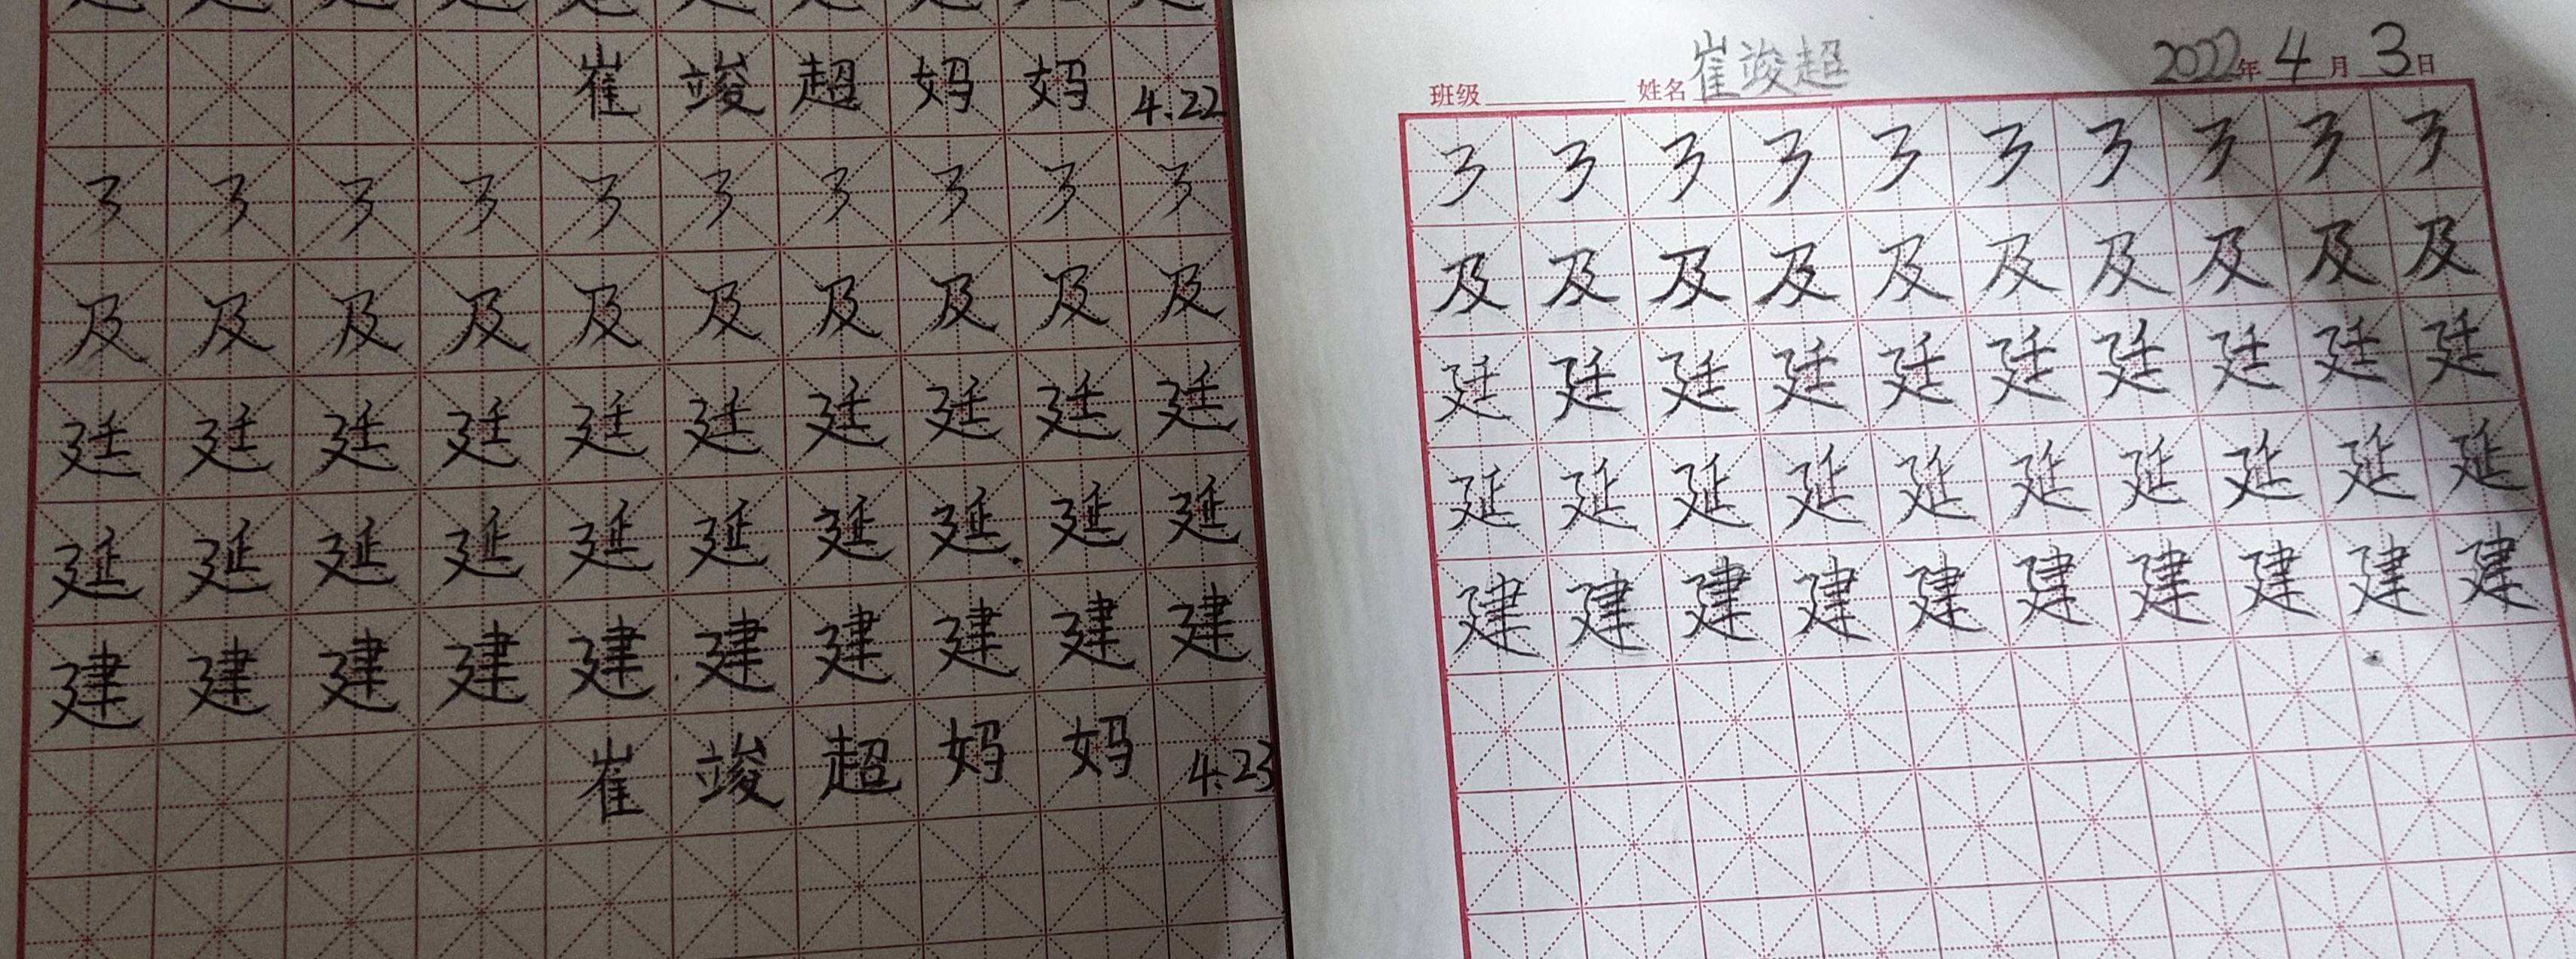 崔竣超妈妈 4.22
㇋㇋㇋㇋㇋㇋㇋㇋㇋㇋
及及及及及及及及及及
廷廷廷廷廷廷廷廷廷廷
延延延延延延延延延延
建建建建建建建建建建
崔竣超妈妈 4.23
班级 姓名 崔竣超 2022年 4月 3日
㇋㇋㇋㇋㇋㇋㇋㇋㇋㇋
及及及及及及及及及及
廷廷廷廷廷廷廷廷廷廷
延延延延延延延延延延
建建建建建建建建建建